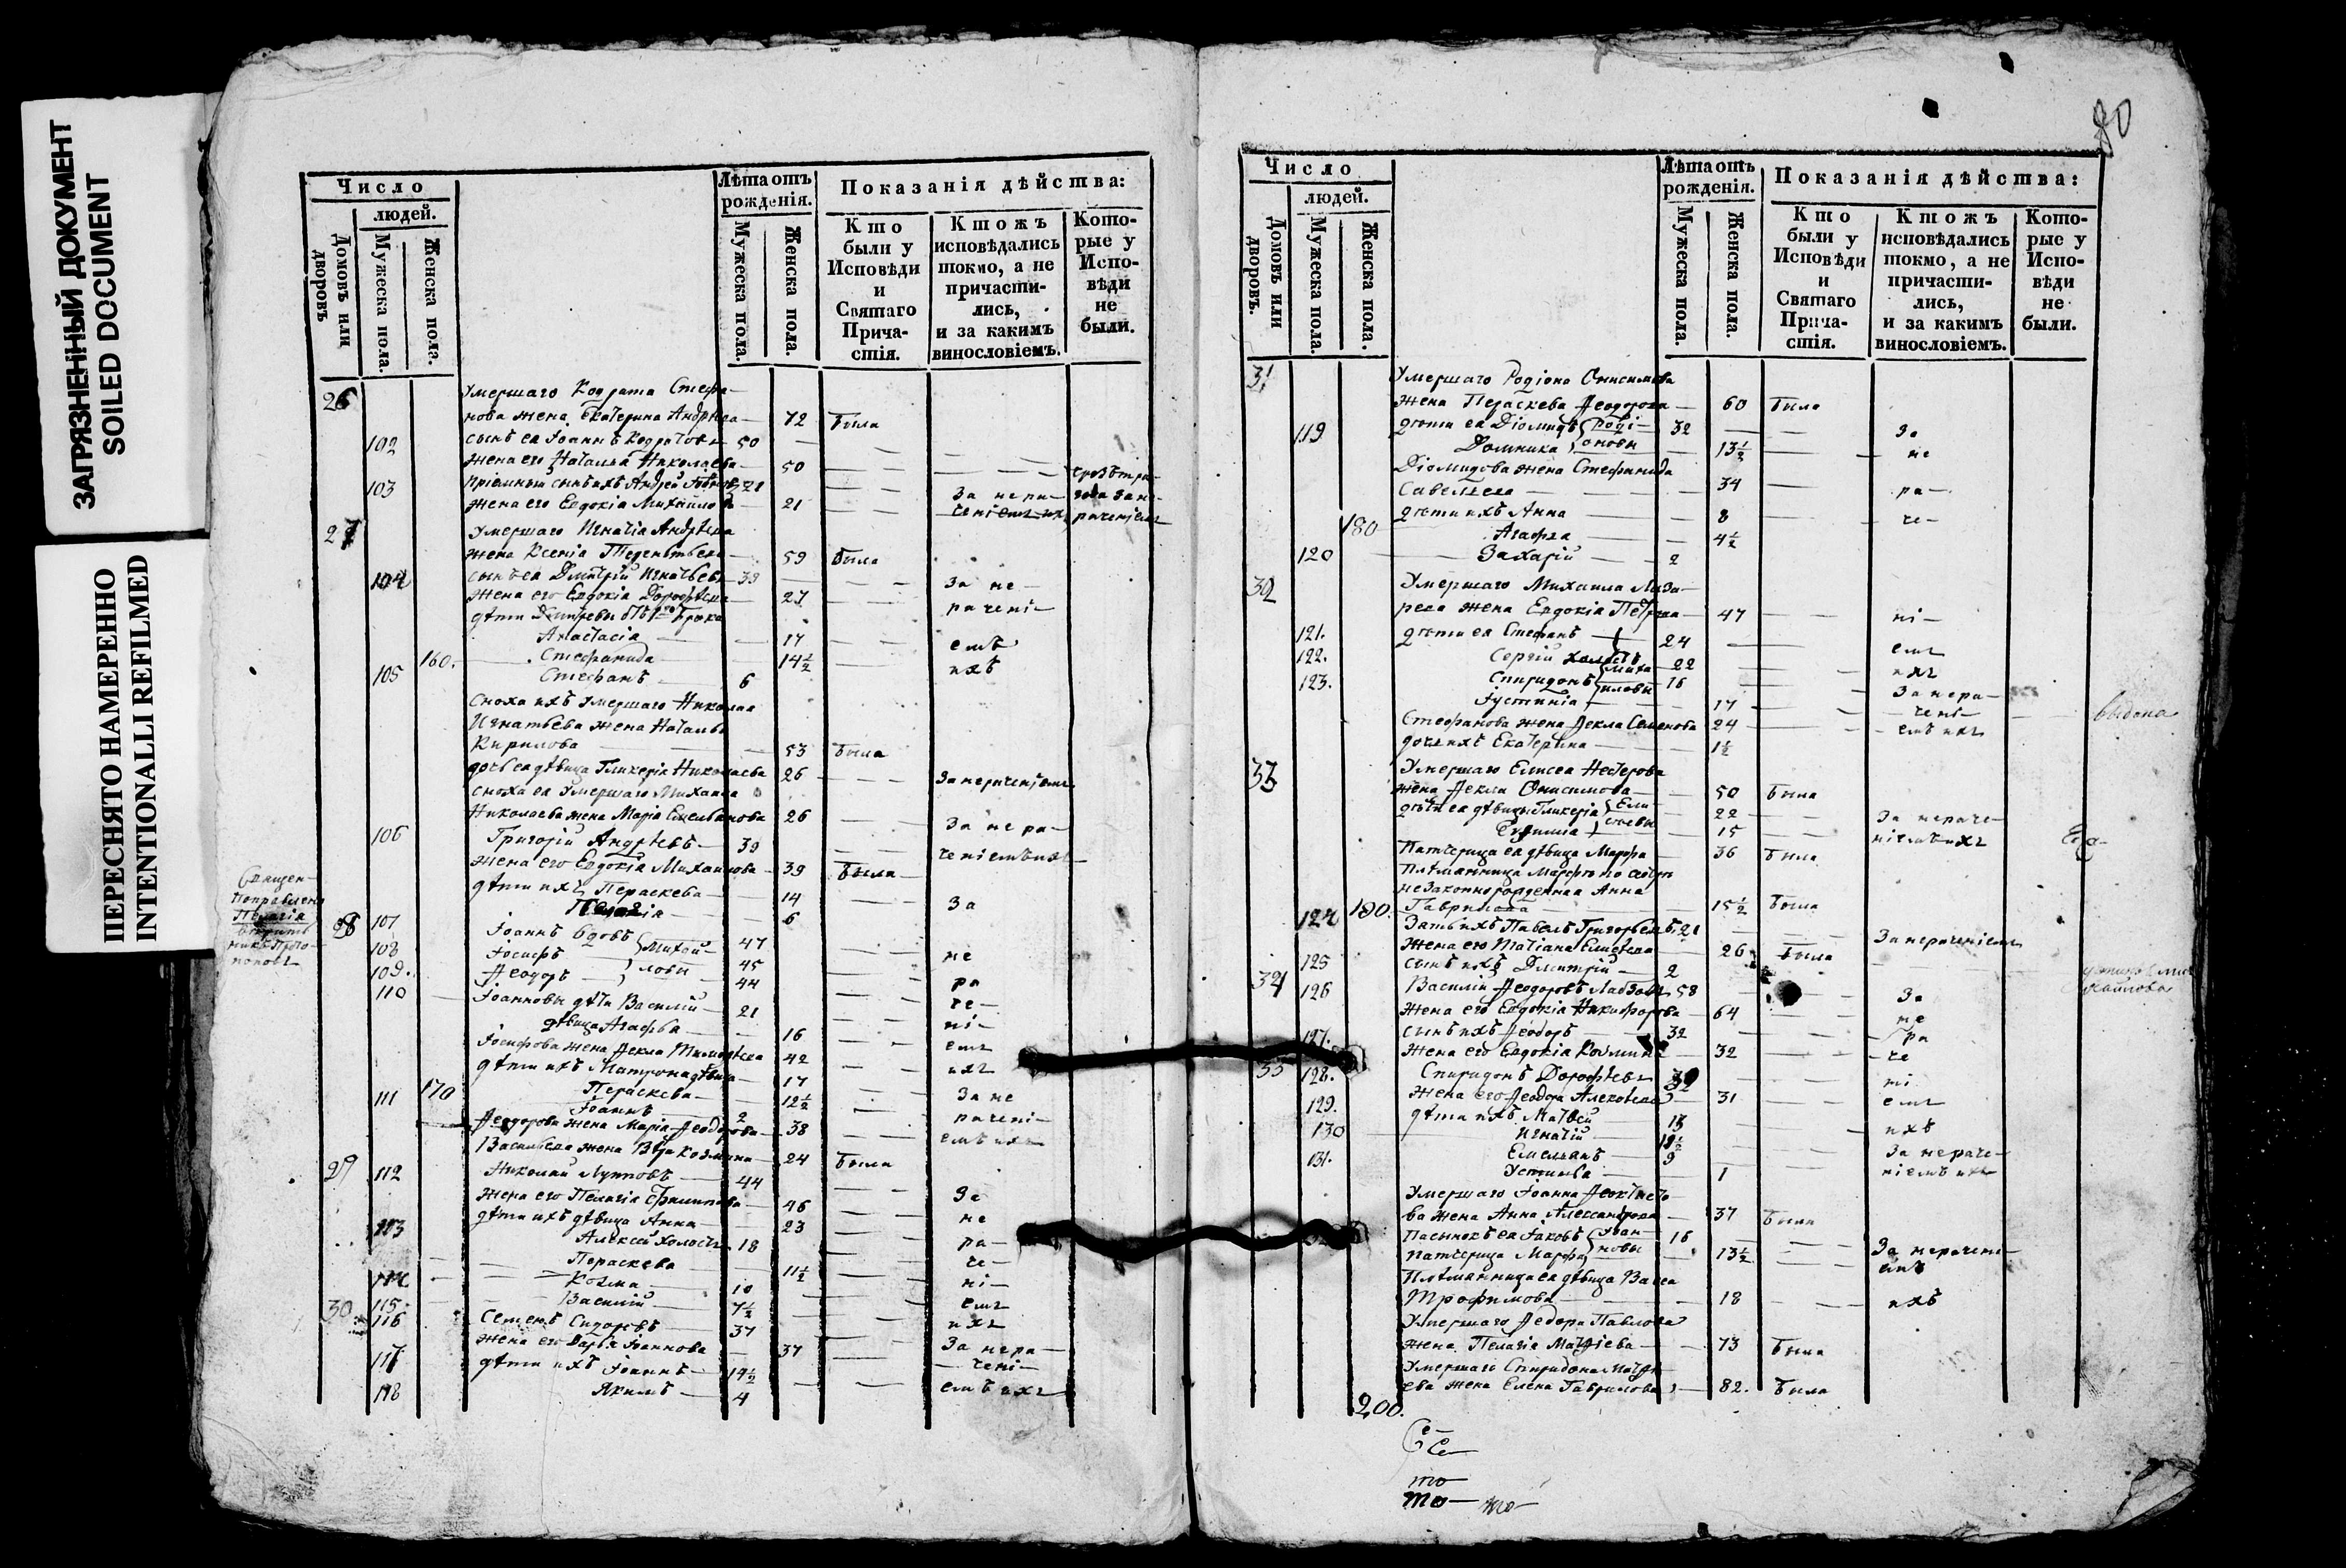 ЗАГРЯЗНЕННЫЙ ДОКУМЕНТ
SOILED DOCUMENT
ПЕРЕСНЯТО НАМЕРЕННО
INTENTIONALLI REFILMED
Число
людей.
Домовъ или дворовъ
Мужеска пола.
Женска пола.
Лѣта отъ рожденія.
Мужеска пола.
Женска пола.
Показанія дѣйства:
Кто были у Исповѣди и Святаго Причастія.
Ктожъ исповѣдались токмо, а не причастились, и за какимъ винословіемъ.
Которые у Исповѣди не были.
26 Умершаго Кодрата Стефа-
нова жена Екатерина Андрѣева 72 была
102 сынъ ея Іоаннъ Кодратовъ 50
жена его Наталья Николаева 50
103 пріемный сынъ ихъ Андрей 21
жена его Евдокія Михайлова 21 За нера- ченіемъ ихъ раченіемъ
27 Умершаго Игнатія Андрѣева
жена Ксенія 59 была
104 сынъ ея Дмитрій Игнатьевъ 39 За не-
жена его Евдокія Дорофѣева 27 рачені-
дѣти Дмитревы отъ 1го брака
Анастасія 17 емъ
160. Стефанида 14½ ихъ
105 Стефанъ 6
сноха ихъ умершаго Николая
Игнатьева жена Наталья
Кирилова 53 была
дочь ея дѣвица Гликерія Николаева 26 За нераченіемъ
сноха ея умершаго Михаила
Николаева жена Марія Емельянова 26 За нера-
106 Григорій Андрѣевъ 39 ченіемъ ихъ
жена его Евдокія Михайлова 39 была
дѣти ихъ Пераскева 14 За
Пелагія 6
28 107 Іоаннъ вдовъ Михай- 47
108 Іосифъ ловы 45 не
109. Ѳеодоръ 44 ра
110 Іоанновы дѣти Василій 21 че-
дѣвица Агафья 16 ні-
Іосифова жена Ѳекла Тимофѣева 42 емъ
дѣти ихъ Матрона дѣвица 17 ихъ
170 Пераскева 12½ За не
111 Іоаннъ 2 рачені-
Ѳеодорова жена Марія Ѳеодорова 38 емъ ихъ
Васильева жена Вѣра Козмина 24 была
29 112 Николай Лупповъ 44
жена его Пелагія Филиппова 46 За
дѣти ихъ дѣвица Анна 23 не
113 Алексѣй холостъ 18 ра-
Пераскева 11½ че-
114 Козма 10 ні-
115. Василій 7½ емъ
30 116 Семенъ Сидоровъ 37 ихъ
жена его Дарья Іоаннова 37 За нера-
117 дѣти ихъ Іоаннъ 14½ чені-
118 Якимъ 4 емъ ихъ
80
Число
людей.
Домовъ или дворовъ.
Мужеска пола.
Женска пола.
Лѣта отъ рожденія.
Мужеска пола.
Женска пола.
Показанія дѣйства:
Кто были у Исповѣди и Святаго Причастія.
Ктожъ исповѣдались токмо, а не причастились, и за какимъ винословіемъ.
Которые у Исповѣди не были.
31 Умершаго Родіона Онисимова
жена Пераскева Ѳеодорова 60 была
119 дѣти ея Діомидъ Роді- 32 За
Домника оновы 13½ не
Діомидова жена Стефанида
Савельева 34 ра-
дѣти ихъ Анна 8 че-
180 Агафья 4½
120 Захарій 2
32 Умершаго Михаила Лаза-
рева жена Евдокія Петрова 47 ні-
121. дѣти ея Стефанъ 24 емъ
122. Сергій холостъ 22 ихъ
123. Спиридонъ Миха- 16 За нера-
Іустинія иловы 17 чені-
Стефанова жена Ѳекла Семенова 24 емъ ихъ
выдана
дочь ихъ Екатерина 1½
33 Умершаго Елисея Нестерова
жена Ѳекла Онисимова 50 была
дѣти ея дѣвицы Гликерія Ели- 22 За нераче-
Евфимія сеевы 15 ніемъ ихъ
Патчерица ея дѣвица Марфа 36 была
Племянница Марфы по сестрѣ
незаконнорожденная Анна
190. Гаврилова 15½ была
124 Зять ихъ Павелъ Григорьевъ 21 За нераченіемъ
жена его Татіана Елисѣева 26 была
125 сынъ ихъ Дмитрій 2
34 126 Василій Ѳеодоровъ 58 За
жена его Евдокія Никифорова 64 не
127. сынъ ихъ Ѳеодоръ 32 ра
жена его Евдокія Козмина 32 че
35 128. Спиридонъ Дорофѣевъ 39 ні
129. жена его Ѳеодора 31 емъ
130 дѣти ихъ Матвей 13 ихъ
Игнатій 12½
131. Емельянъ 9 За нераче-
Устинья 1 ніемъ ихъ
Умершаго Іоанна Ѳеоктисто-
ва жена Анна Александрова 37 была
Пасынокъ ея Іаковъ Іоан- 16
патчерица Марфа новы 13½ За нерачені-
Племянница ея дѣвица Васса емъ
Трофимова 18 ихъ
Умершаго Ѳедора Павлова
жена Пелагія Матфіева 73 была
Умершаго Спиридона Матфѣ-
ева жена Елена Гаврилова 82. была
200.
то
то- то-